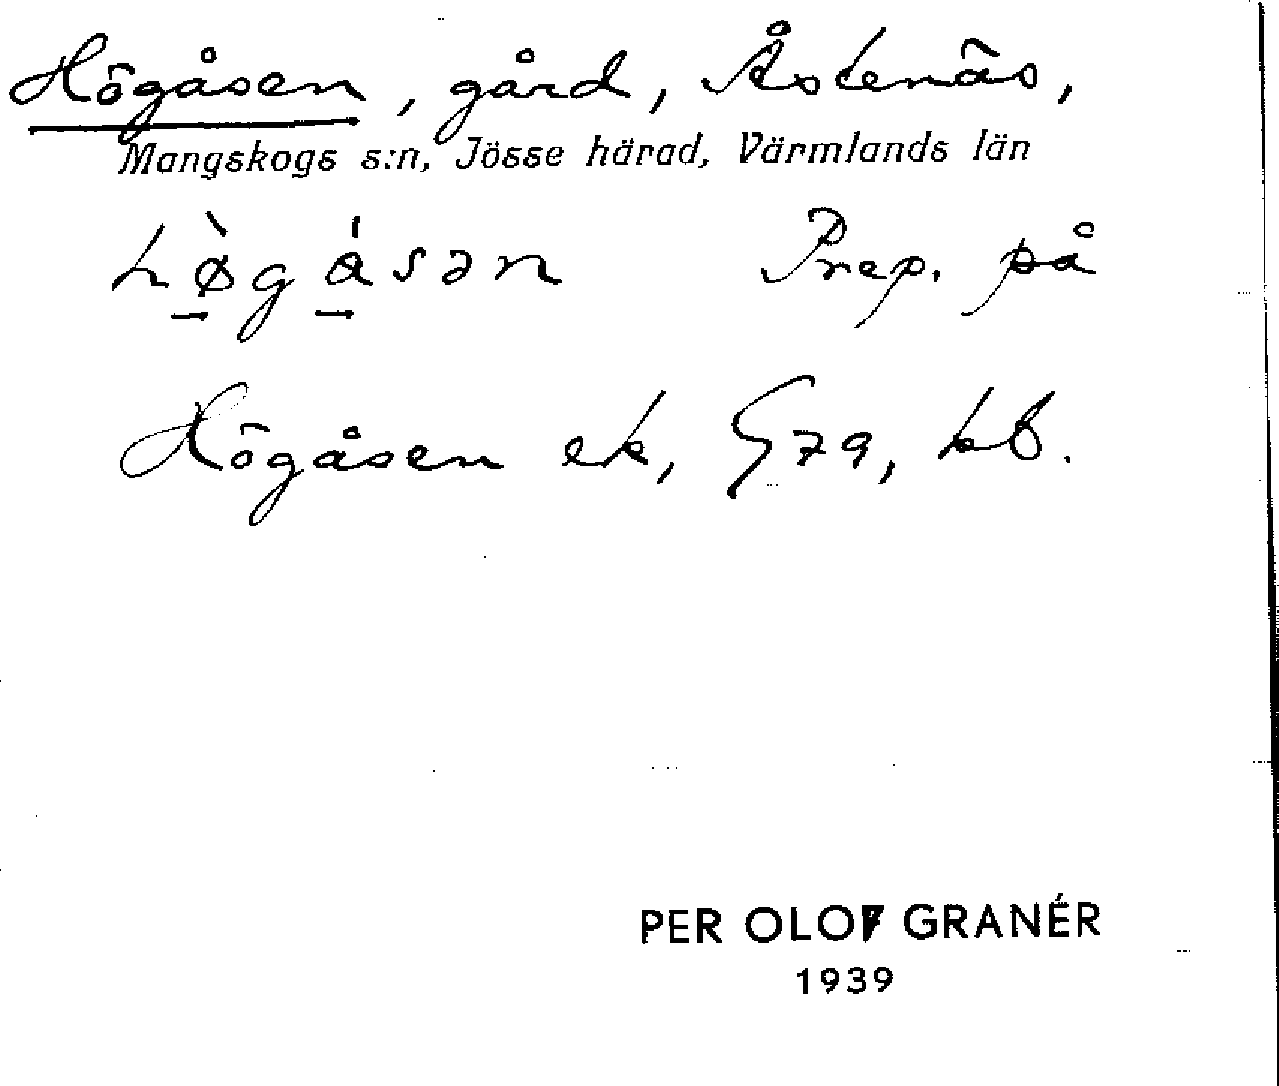 Högåsen, gård, Åstenäs,
Mangskogs s:n, Jösse härad, Värmlands län
hø̠̀gɑ̠́sən Prep. på
Högåsen ek, Gza, kb.
PER OLOF GRANÉR
1939